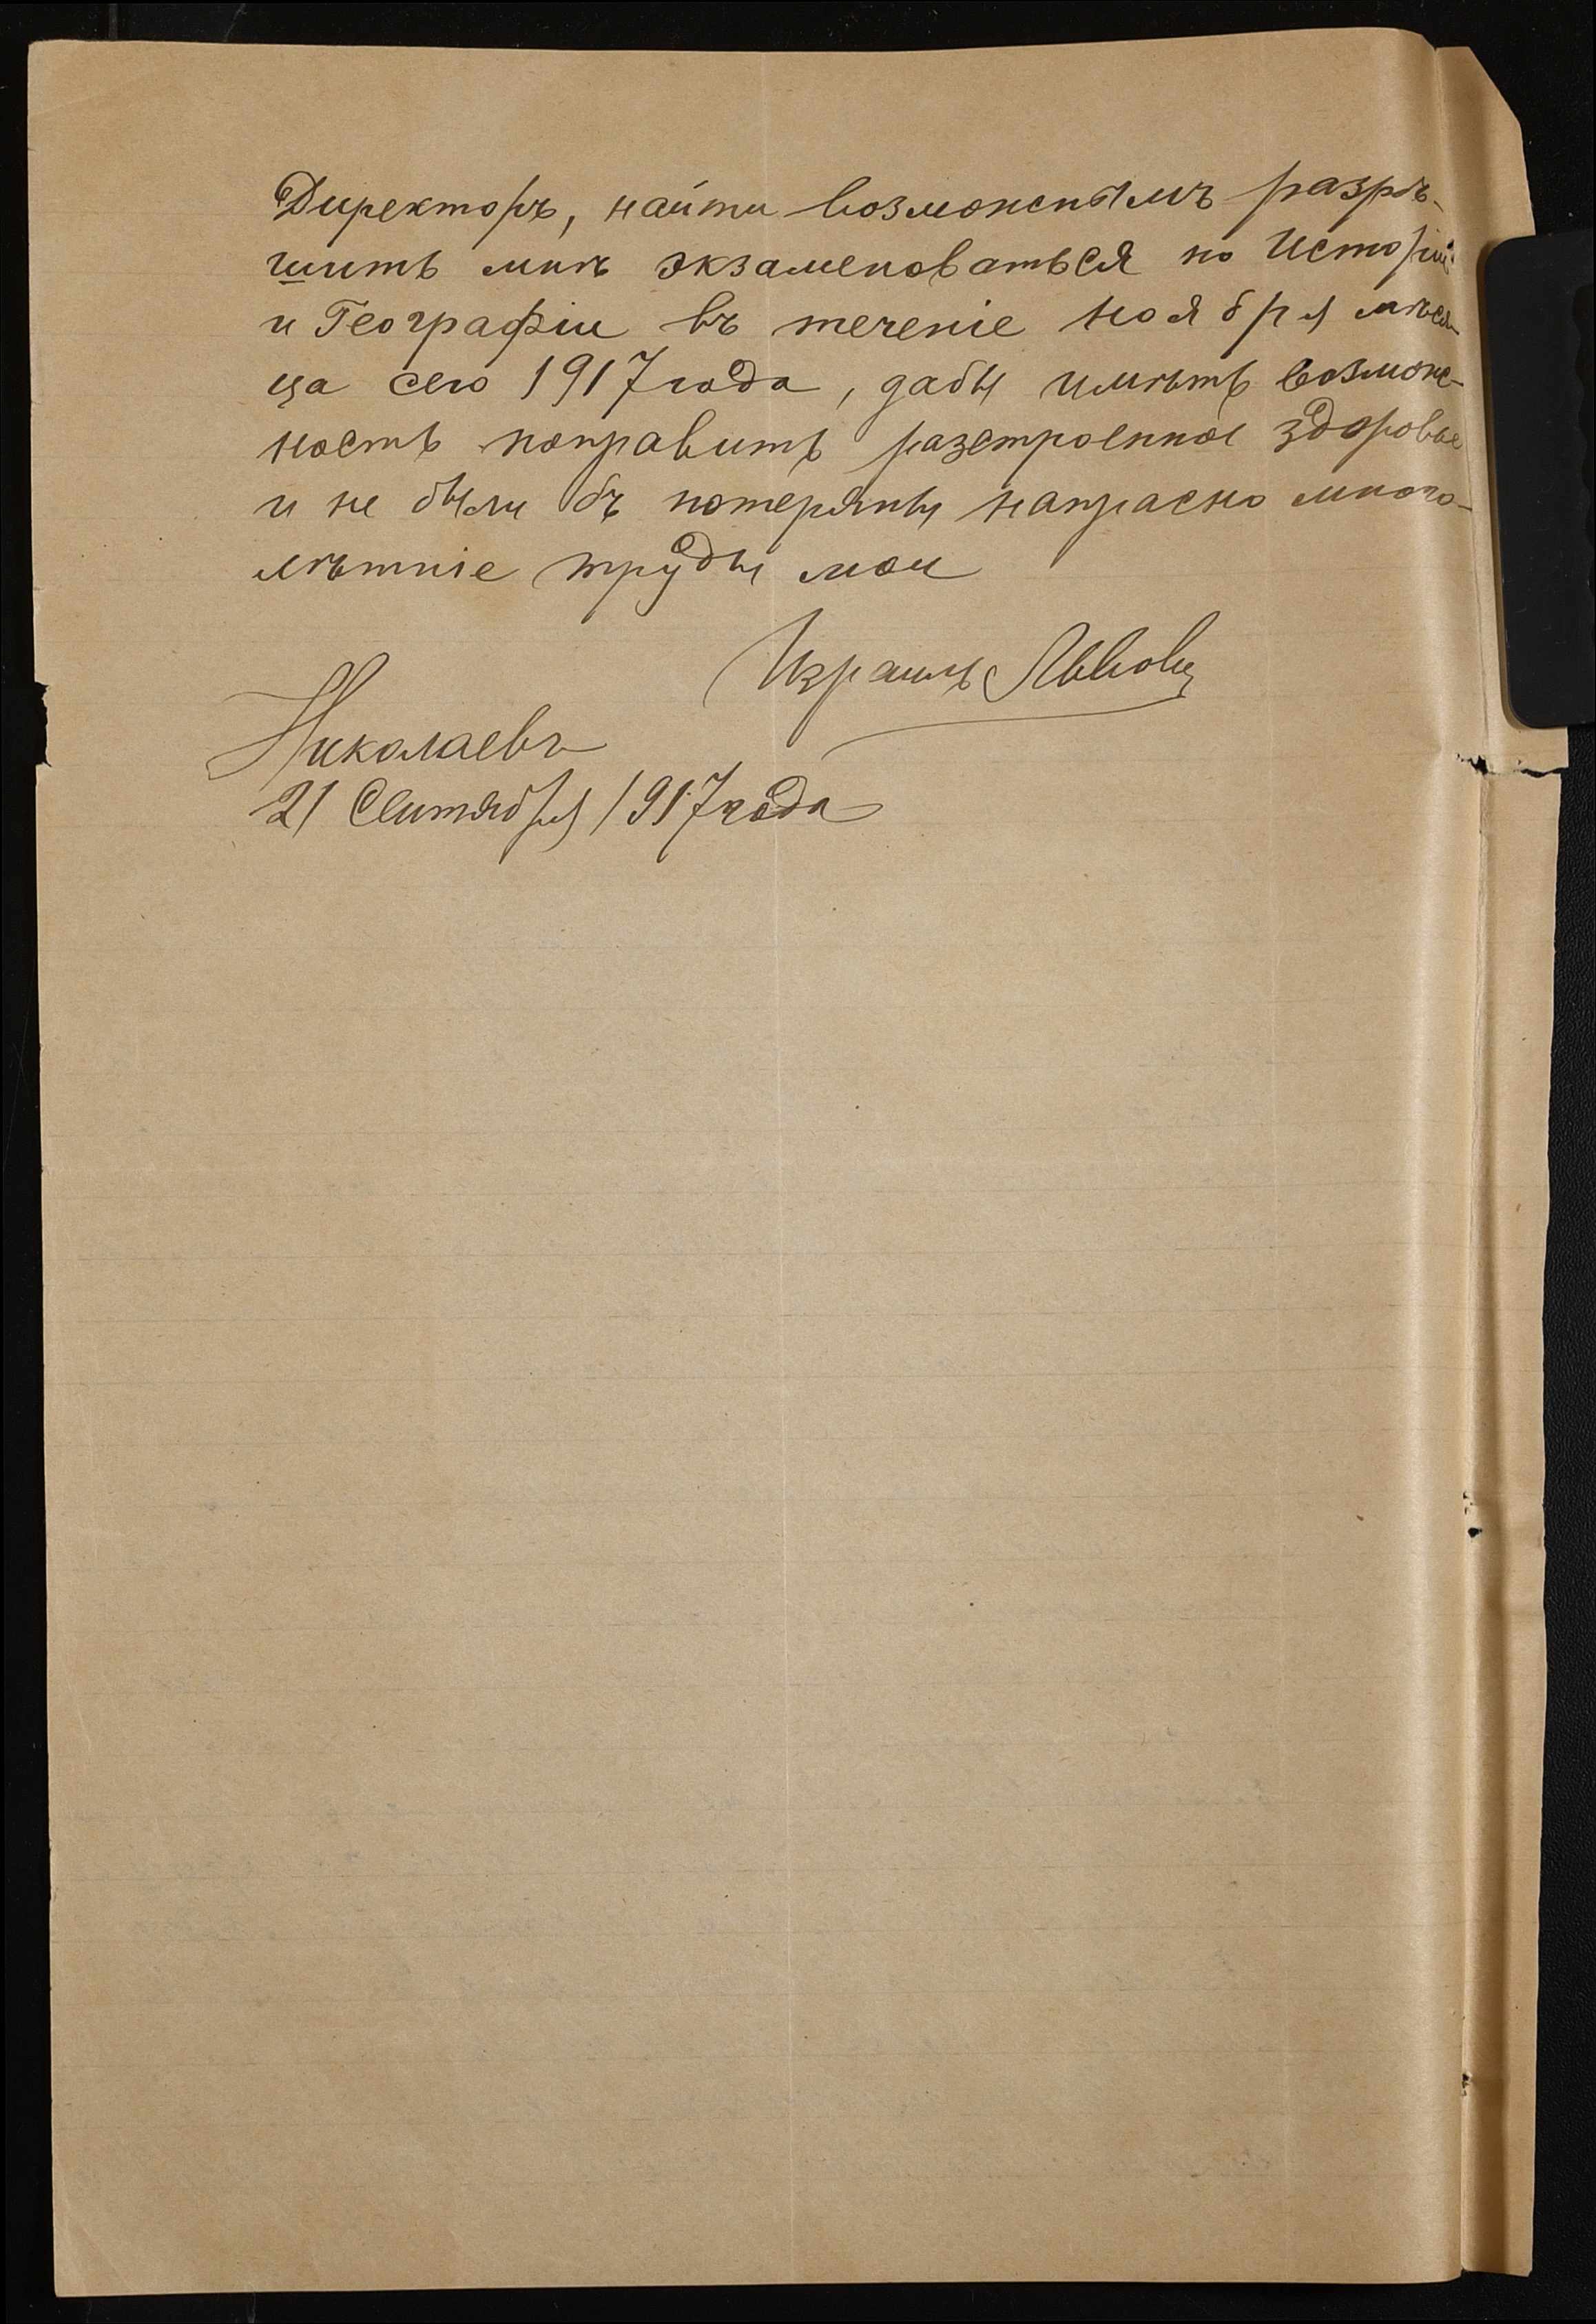 Директоръ, найти возможнымъ разрѣ-
шить мнѣ экзаменоваться по Исторіи
и Географіи въ теченіе ноября мѣся-
ца сего 1917 года, дабы имѣть возмож-
ность поправить разстроенное здоровье
и не были бъ потеряны напрасно много-
лѣтніе труды мои
Израиль
Николаевъ
21 Сентября 1917 года